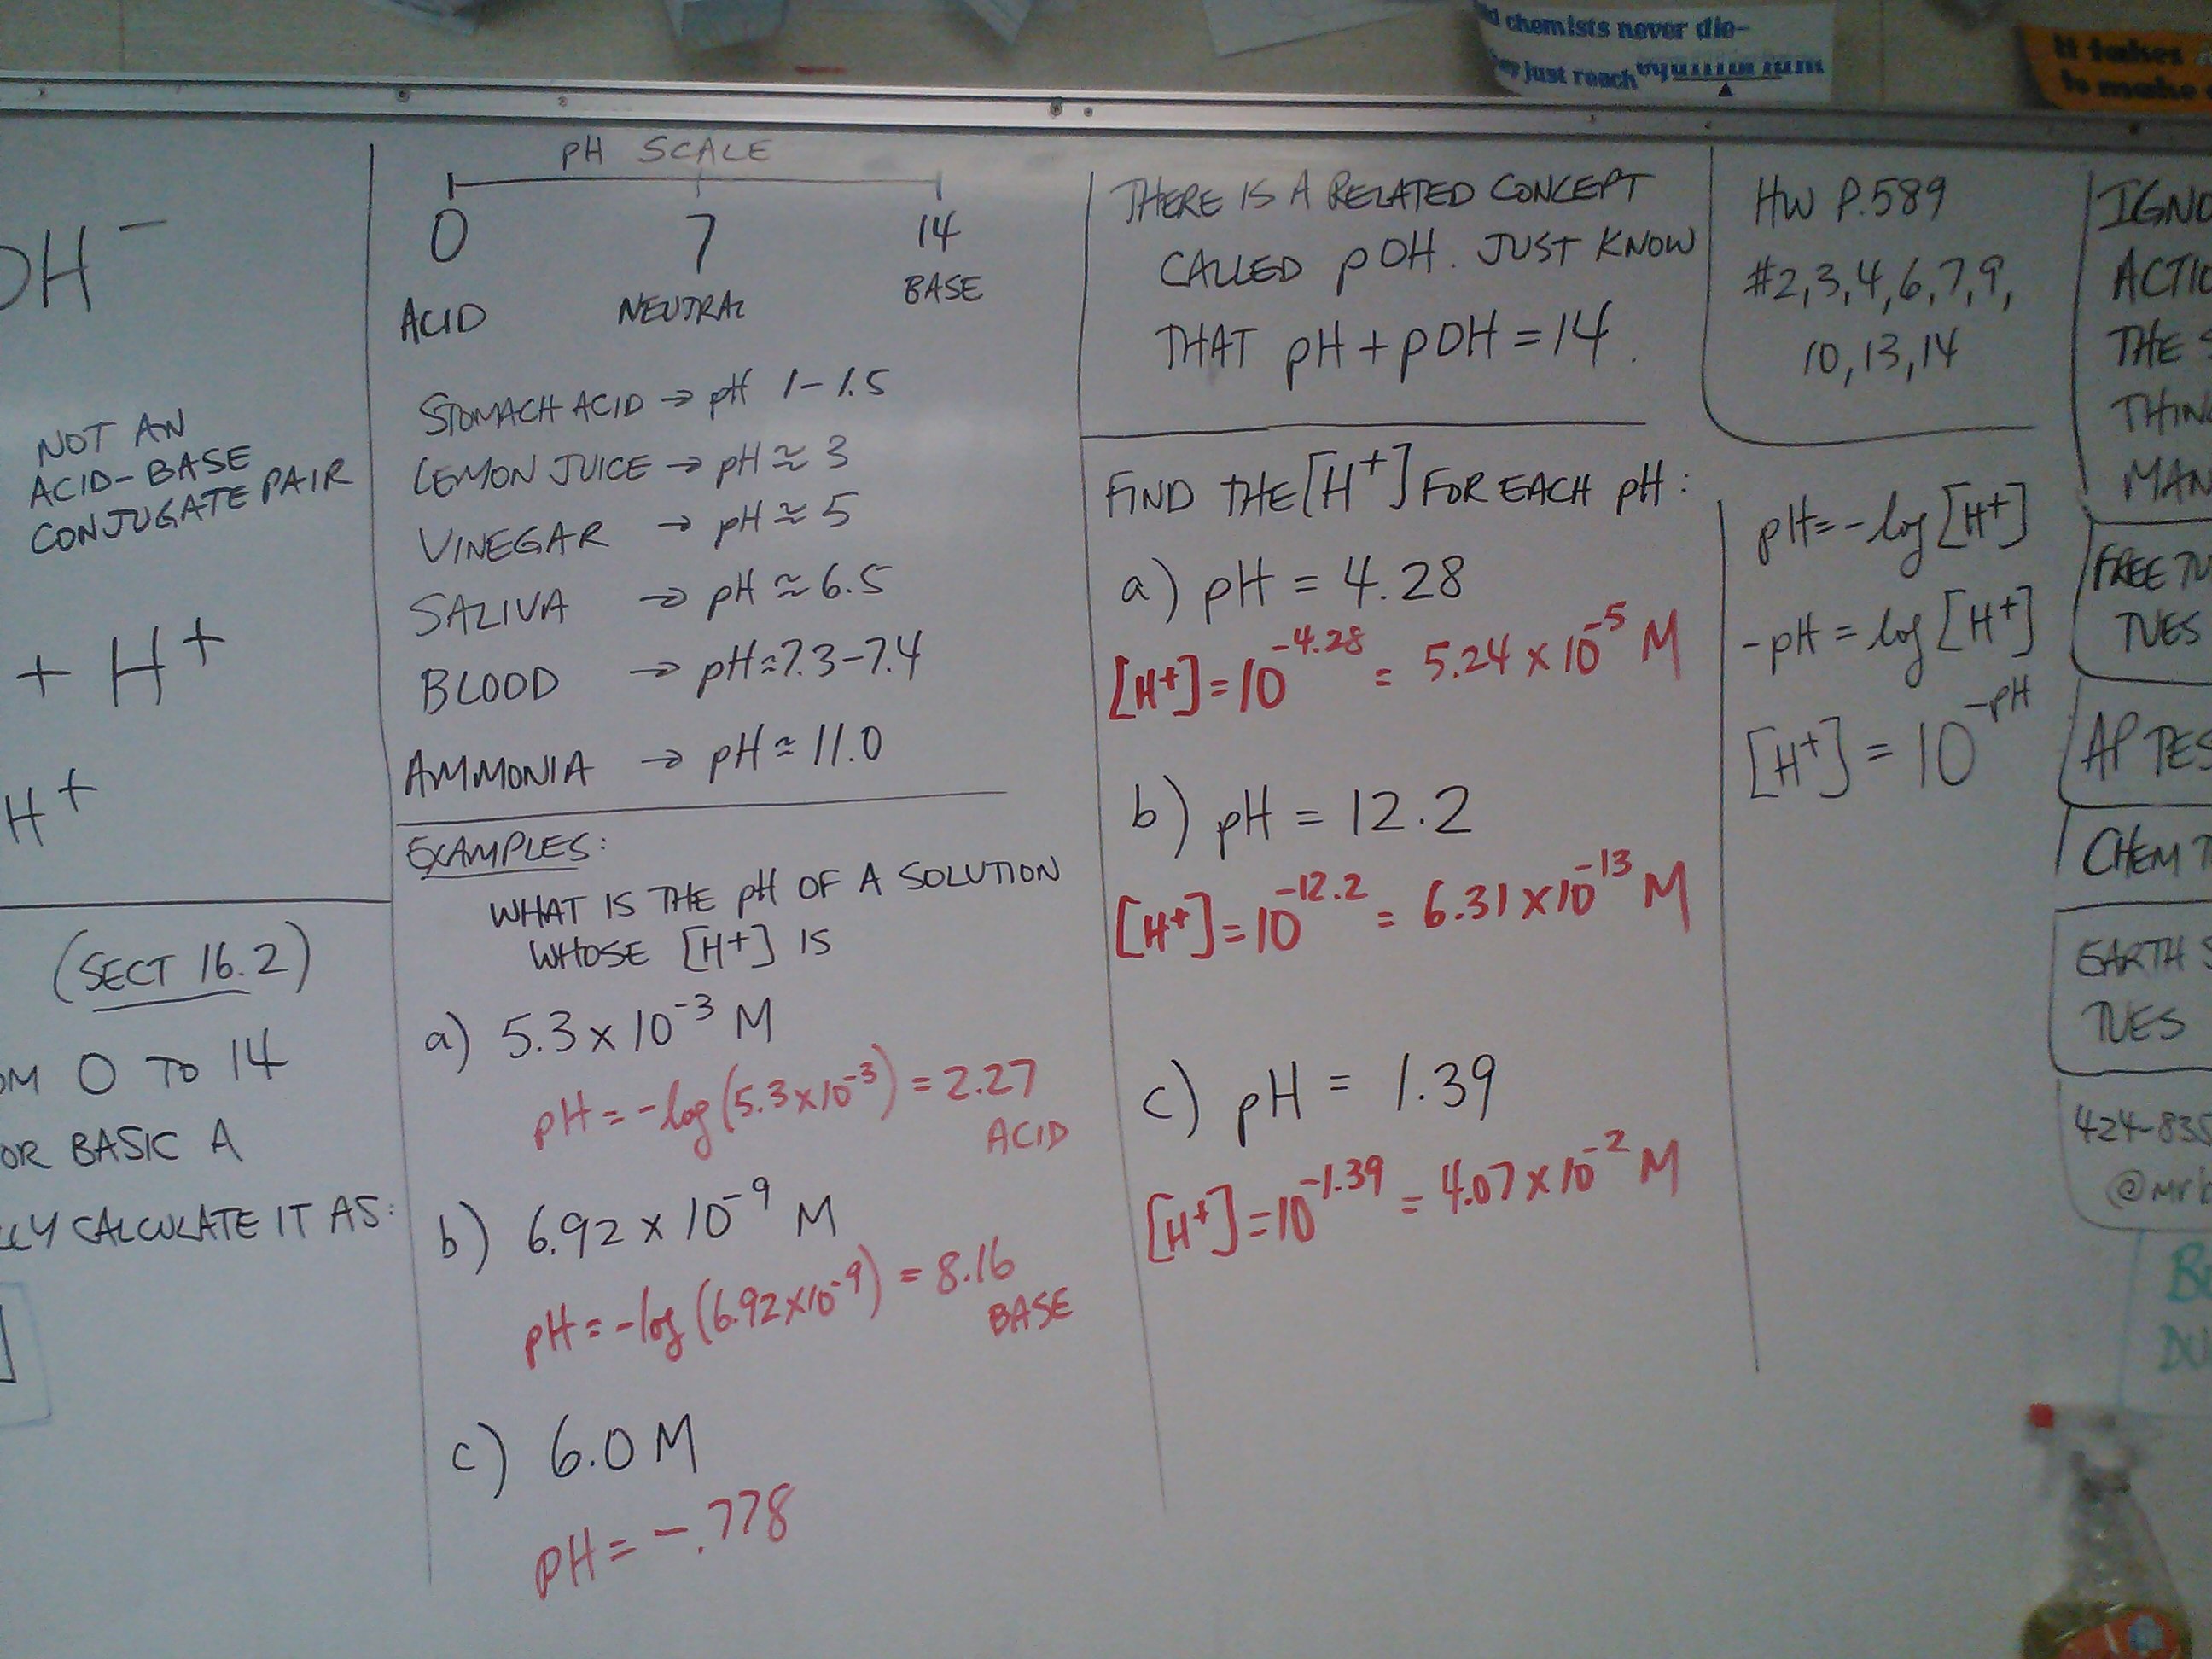 chemists never die-
just reach
It takes
to make
OH⁻
NOT AN
ACID-BASE
CONJUGATE PAIR
+ H⁺
H⁺
(SECT 16.2)
0 TO 14
OR BASIC A
CALCULATE IT AS:
pH SCALE
0 7 14
ACID NEUTRAL BASE
STOMACH ACID → pH 1-1.5
LEMON JUICE → pH ≈ 3
VINEGAR → pH ≈ 5
SALIVA → pH ≈ 6.5
BLOOD → pH ≈ 7.3-7.4
AMMONIA → pH ≈ 11.0
EXAMPLES:
WHAT IS THE pH OF A SOLUTION
WHOSE [H+] IS
a) 5.3 x 10⁻³ M
pH = -log(5.3x10⁻³) = 2.27
ACID
b) 6.92 x 10⁻⁹ M
pH = -log(6.92x10⁻⁹) = 8.16
BASE
c) 6.0 M
pH = -.778
THERE IS A RELATED CONCEPT
CALLED pOH. JUST KNOW
THAT pH + pOH = 14.
FIND THE [H⁺] FOR EACH pH:
a) pH = 4.28
[H+] = 10⁻⁴·²⁸ = 5.24 x 10⁻⁵ M
b) pH = 12.2
[H+] = 10⁻¹²·² = 6.31 x 10⁻¹³ M
c) pH = 1.39
[H+] = 10⁻¹·³⁹ = 4.07 x 10⁻² M
HW P.589
#2,3,4,6,7,9,
10,13,14
pH = -log [H+]
-pH = log [H+]
[H+] = 10^-pH
THE
FREE
TUES
AP
CHEM
EARTH
TUES
424-835